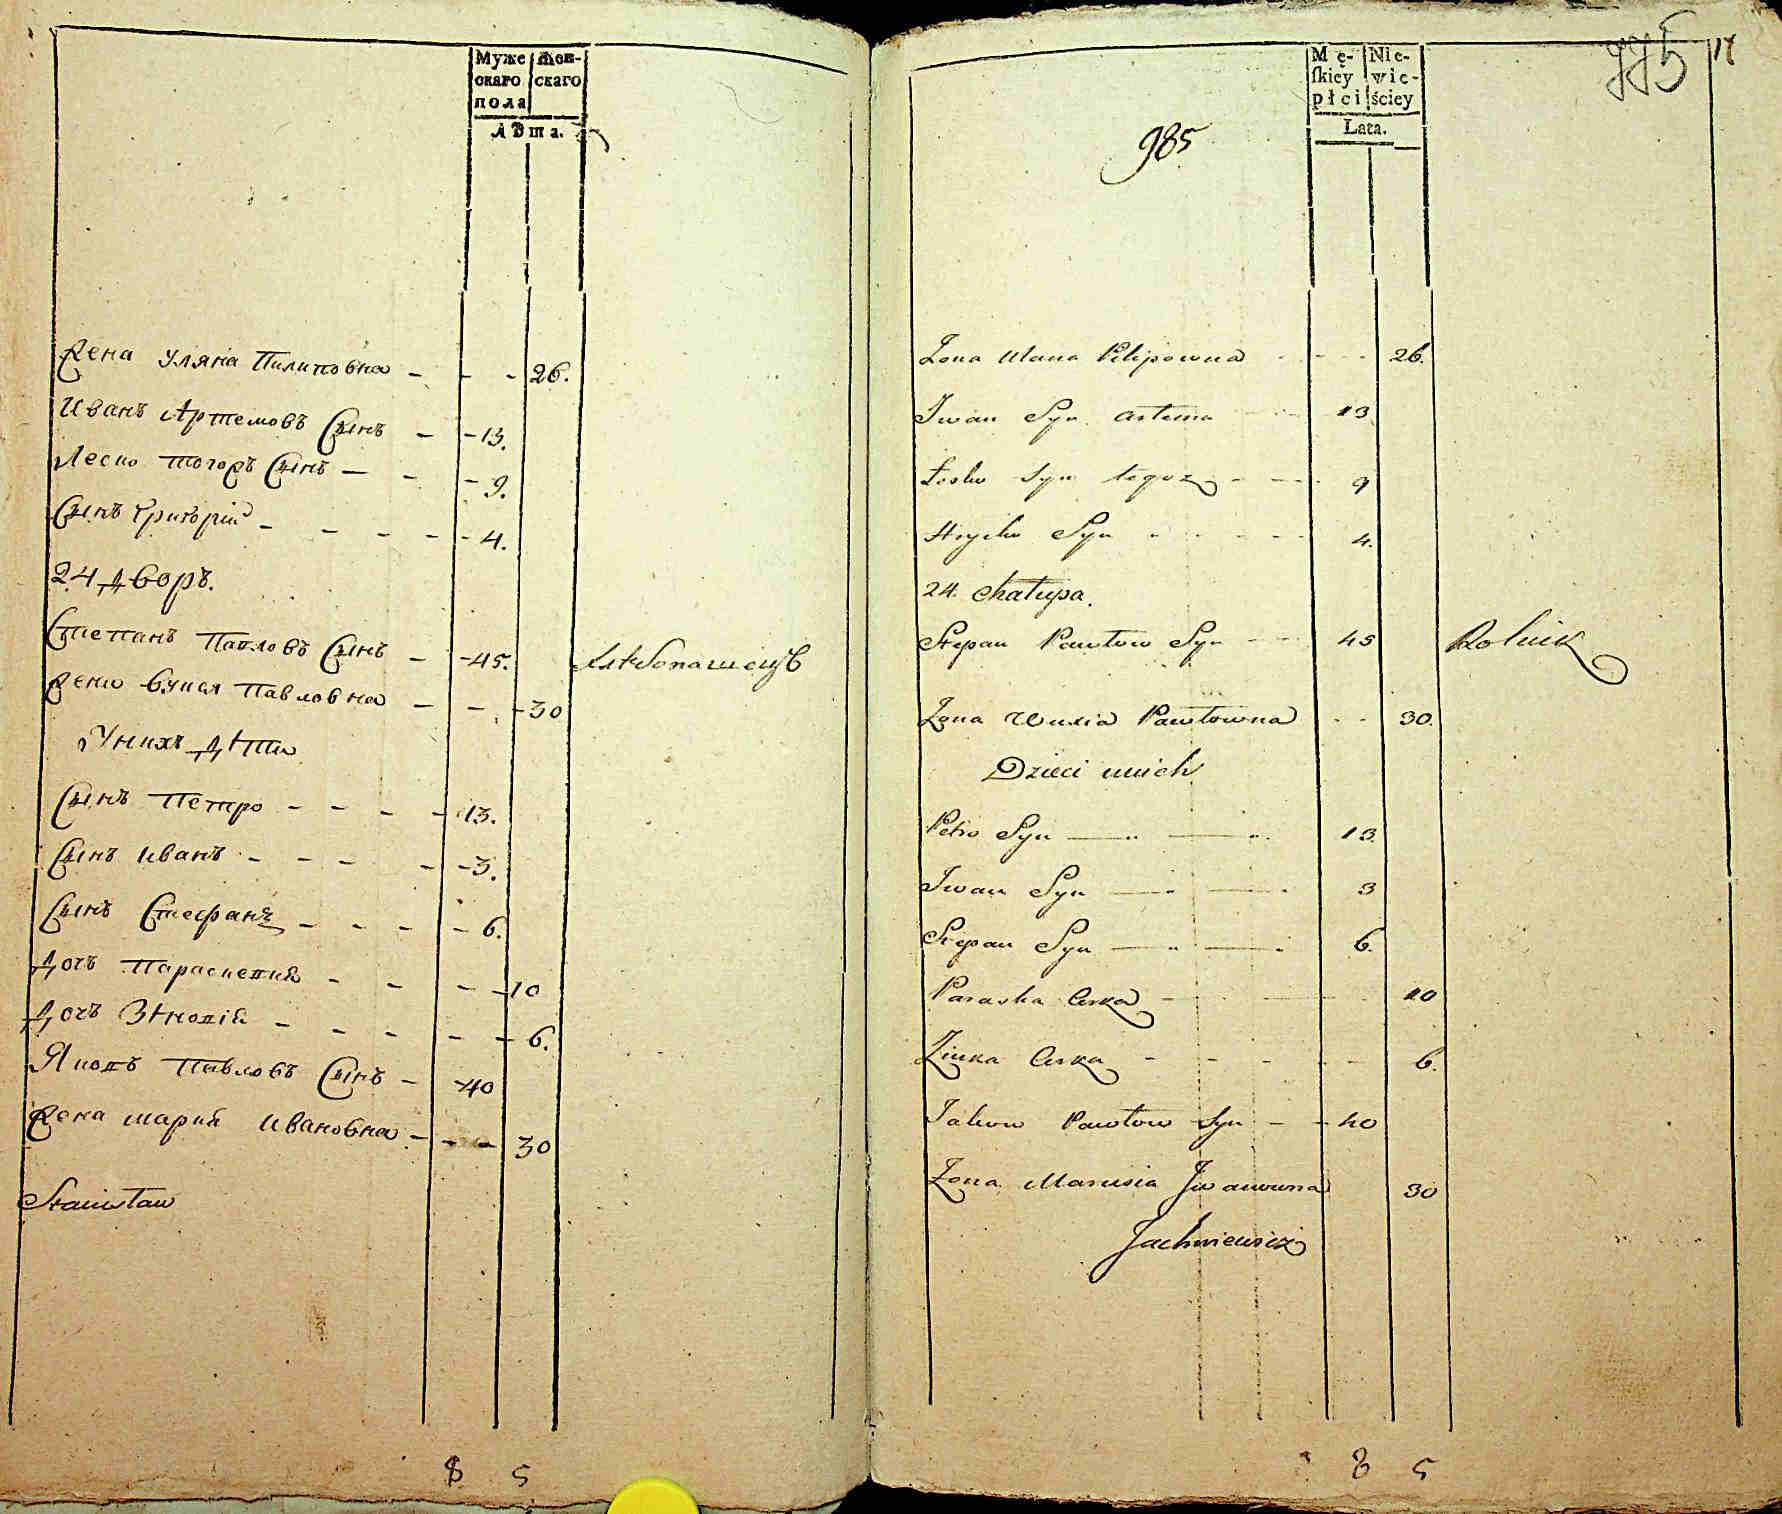 Муже Жен-
скаго скаго
пола
лѣта.
Жена Уляна Пилиповна - - - 26.
Иванъ Артемовъ Сынъ - - 13.
Леско тогожъ Сынъ - - - 9.
Сынъ Григорій - - - - - 4.
24 дворъ.
Степанъ Павловъ Сынъ - - 45. Хлѣбопашецъ
Жена Вумся Павловна - - - 30
У нихъ дѣти
Сынъ Петро - - - - 13.
Сынъ Иванъ - - - - - 3.
Сынъ Стефанъ - - - - 6.
Дочъ Параскевия - - - - 10
Дочъ Зѣновія - - - - - - 6.
Яковъ Павловъ Сынъ - - 40
Жена Мария Ивановна - - - 30
Stanisław
8 5
775 17
Mę- Nie-
skiey wie-
płci ściey
Lata.
985
Zona Ulana Pilipowna - - - 26.
Iwan Syn Artema - - 13
Łesko Syn tegoz - - - 9
Hryćko Syn - - - - 4.
24. Chałupa.
Stepan Pawłow Syn - - 45 Rolnik
Zona Pawłowna - - 30.
Dzieci u nich
Petro Syn — " — " 13.
Iwan Syn — " — " 3
Stepan Syn — " — " 6.
Paraska Curka - - - - 10
Zinka Curka - - - - - 6.
Jakow Pawłow Syn - - 40
Zona Marusia Jwanowna 30
Jachniewicz
8 5